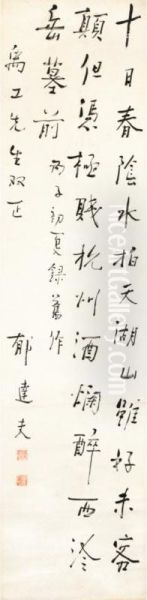 十日春陰水拍天湖山雖好未容
顛但憑極賤杭州酒爛醉西泠
岳墓前
丙子初夏錄舊作
禹工先生双正
郁達夫